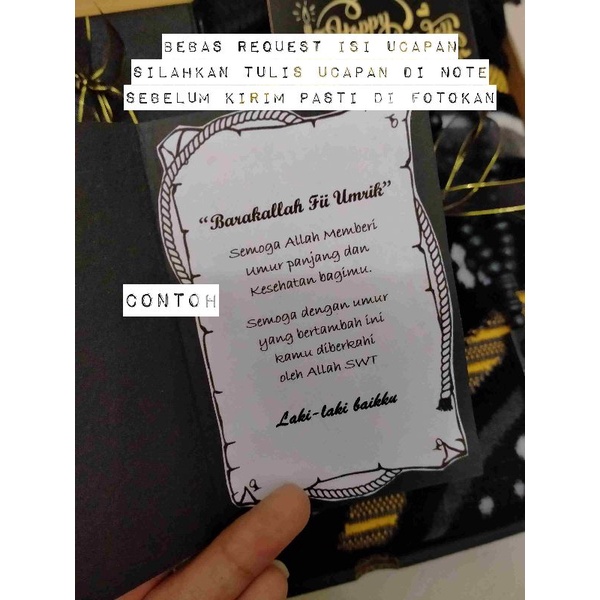 BEBAS REQUEST ISI UCAPAN
SILAHKAN TULIS UCAPAN DI NOTE
SEBELUM KIRIM PASTI DI FOTOKAN
Happy
CONTOH
“Barakallah Fii Umrik”
Semoga Allah Memberi
Umur panjang dan
Kesehatan bagimu.
Semoga dengan umur
yang bertambah ini
kamu diberkahi
oleh Allah SWT
Laki-laki baikku